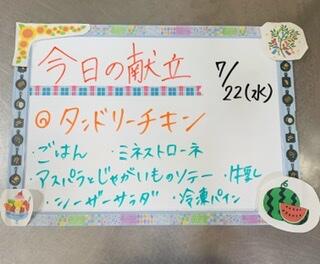 今日の献立 7/22(水)
◎タンドリーチキン
・ごはん ・ミネストローネ
・アスパラとじゃがいものソテー ・牛乳
・シーザーサラダ ・冷凍パイン